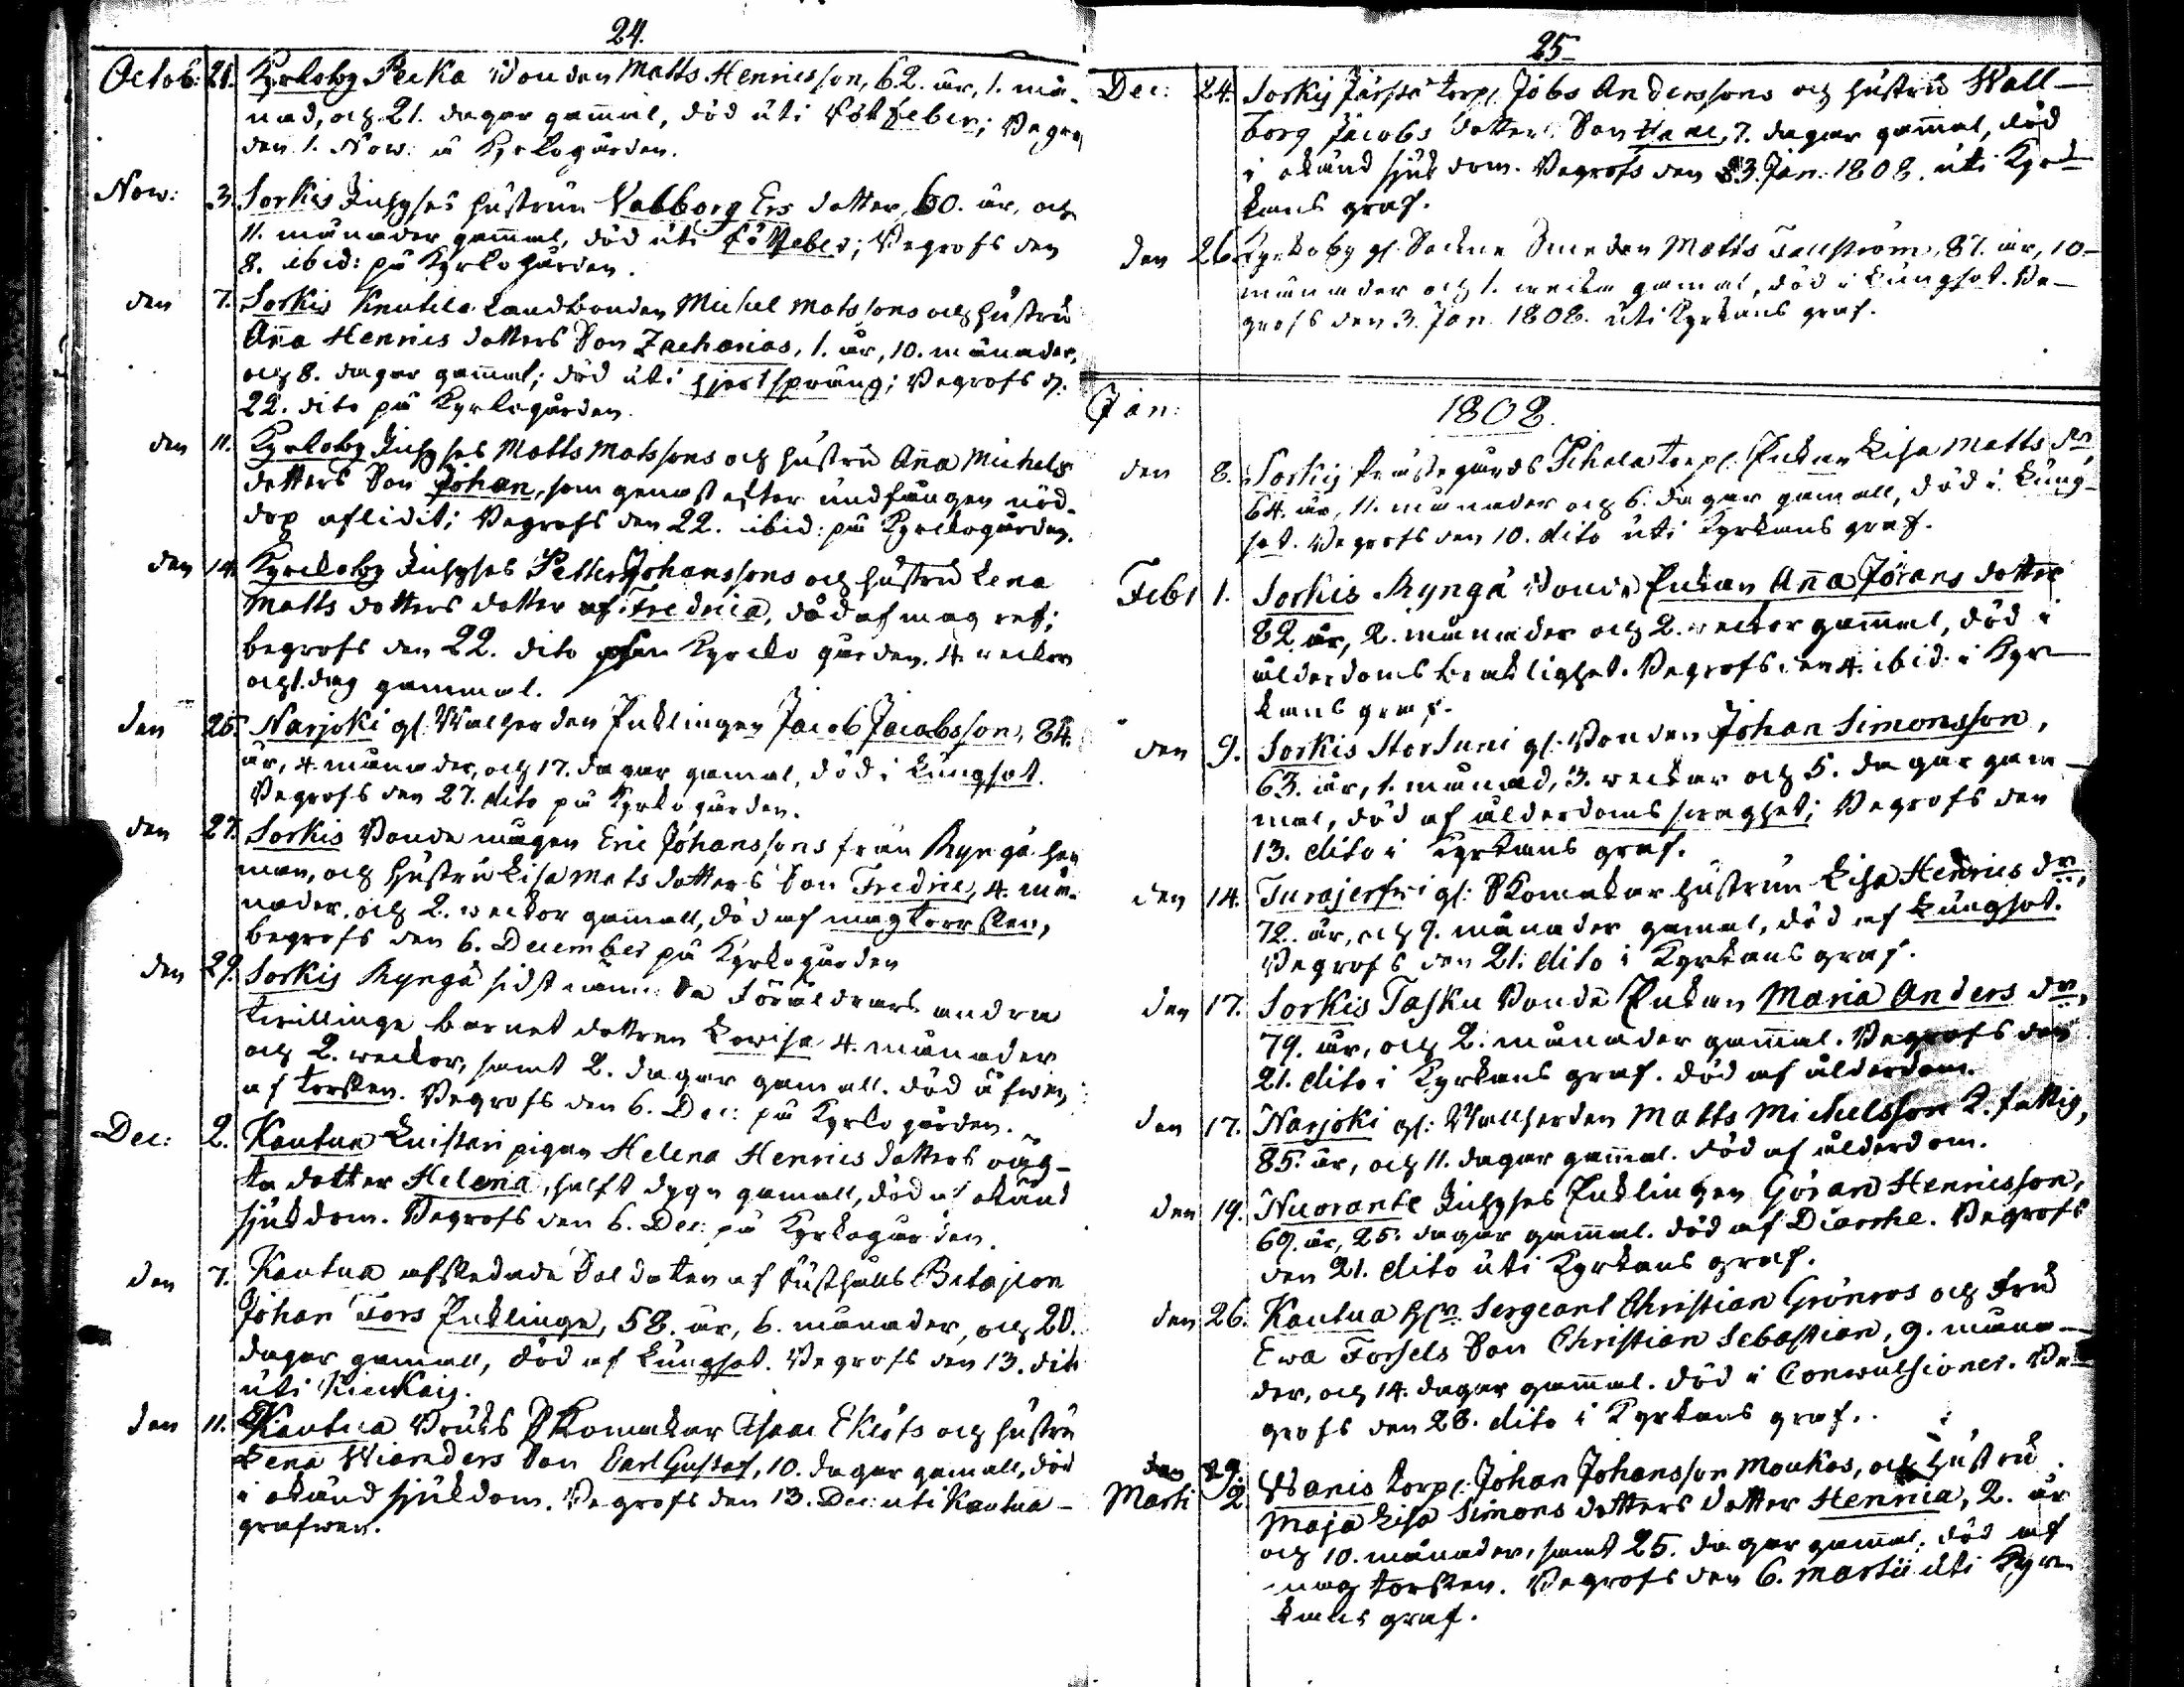 24.
Octob: 21. Kyrkoby Pecka Bonden Matts Henricsson, 62. år, 1. må-
nad, och 21. dagar gam̄al, död uti Rötfeber; Begrofs
den 1. Now: å Kyrkogården.
Now: 3. Sorkis Inhyses hustrun Valborg Ers dotter, 60. år, och
11. månader gam̄al, död uti Rötfeber; Begrofs den
8. ibid: på Kyrkogården.
den 7. Sorkis Knutila Landbonden Michel Matssons och hustru
An̄a Henrics dotters Son Zacharias, 1. år, 10. månader,
och 8. dagar gam̄al; död uti hjertsprång; Begrofs d.
22. dito på Kyrkogården.
den 11. Kyrkoby Inhyses Matts Matssons och hustru An̄a Michels
dotters Son Johan, som genast efter undfången nöd-
dop aflidit; Begrofs den 22. ibid: på Kyrckogården.
den 14. Kyrckoby Inhyses Petter Johanssons och hustru Lena
Matts dotters dotter Fredrica, död af mag ref;
begrofs den 22. dito på Kyrcko gården. 4. weckor
och 1. dag gammal.
den 25. Narjoki gl. Wallherden Enklingen Jacob Jacobsson, 84.
år, 4. månader, och 17. dagar gamal, död i Lungsot.
Begrofs den 27. dito på Kyrkogården.
den 27. Sorkis Bonde mågen Eric Johanssons från Ryngä hem
man, och hustru Lisa Mats dotters Son Fredric, 4. må-
nader, och 2. weckor gamall, död af mag torrsken,
begrofs den 6. December på Kyrkogården
den 29. Sorkis Ryngä sidst näm̄da Föräldrars andra
twillinge barnet dottren Lowisa 4. månader
och 2. weckor, samt 2. dagar gamall. död äfwen
af torsken. Begrofs den 6. Dec: på Kyrko gården.
Dec: 2. Kautua Knistari pigan Helena Henrics dotters oäg-
ta dotter Helena, halft dygn gamall, död af okänd
sjukdom. Begrofs den 6. Dec: på Kyrkogården.
den 7. Kautua afskedade Soldaten af Rusthålls Bataljon
Johan Fors Enklinge, 58. år, 6. månader, och 20.
dagar gamall, död af Lungsot. Begrofs den 13. dito
uti
den 11. Kautua Bruks Skomakar Isaac Ekrots och hustru
Lena Wianders Son Carl Gustaf, 10. dagar gamall, död
i okänd sjukdom. Begrofs den 13. Dec: uti Kautua-
grafwen.
25
Dec: 24. Sorkis torp. Jobs Anderssons och hustru Wall-
borg Jacobs dotters Son 7. dagar gam̄al, död
i okänd sjukdom. Begrofs den 3. Jan: 1808. uti Kyr-
kans graf.
den 26. Kyrkoby gl. Sockne Smeden Matts Fallström, 87. år, 10-
månader och 1. wecka gamal, död i Lungsot. Be-
grofs den 3. Jan. 1808. uti Kyrkans graf.
Jan: 1808.
den 8. Sorkis Prästegårds Pihala torp. Enkan Lisa Matts dr,
64. år, 11. månader och 6. dagar gamall, död i Lung-
sot. Begrofs den 10. dito uti Kyrkans graf.
Febr 1. Sorkis Ryngä Bonde Enkan An̄a Jörans dotter
82 år, 2. månader och 2. weckor gam̄al, död i
ålderdoms bräcklighet. Begrofs den 4. ibid: i Kyr-
kans graf.
den 9. Sorkis Storsuni gl. Bonden Johan Simonsson,
63. år, 1. månad, 3. weckor och 5. dagar gam-
mal, död af ålderdoms swaghet; Begrofs den
13. dito i Kyrkans graf.
den 14. Turajerfwi gl: Skomakar hustrun Lisa Henrics dr,
72. år, och 9. månader gamal, död af Lungsot.
Begrofs den 21. dito i Kyrkans graf.
den 17. Sorkis Tasku Bonde Enkan Maria Anders dr,
79. år, och 2. månader gam̄al. Begrofs den
21. dito i Kyrkans graf. död af ålderdom.
den 17. Narjoki gl: Wallherden Matts Michelsson fattig,
85. år, och 11. dagar gam̄al. död af ålderdom.
den 19. Nuorante Inhyses Enklingen Göran Henricsson,
69. år, 25. dagar gam̄al. död af Diarrhe. Begrofs
den 21. dito uti Kyrkans graf.
den 26. Kautua Hrr Sergeant Christian Grönros och Fru
Ewa Forsels Son Christian Sebastian, 9. måna-
der, och 14. dagar gam̄al. död i Conwulsioner. Be-
grofs den 28. dito i Kyrkans graf.
den 29.
Marti 2. Wanis torp. Johan Johansson Moukos, och hustru
Maja Lisa Simons dotters dotter Henrica, 2. år
och 10. månader, samt 25. dagar gam̄al; död af
mag torsken. Begrofs den 6. Martii uti Kyr-
kans graf.